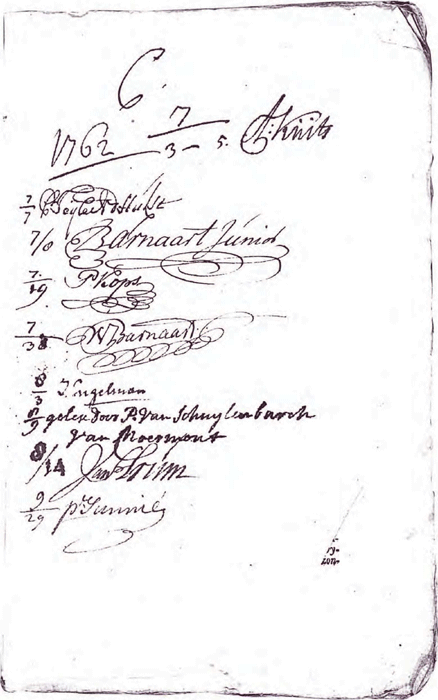 6
1762 7/3 - 5. A: Kuits
7/7 P Teyler vd Hulst
7/8 Barnaart Júnior
7/19 P Kops
7/38 W Barnaart.
8/3 J. Engelman
8/9 gelesen door P. Van Schuylenburch
Van Moermont
8/14 Jan
9/29 pr